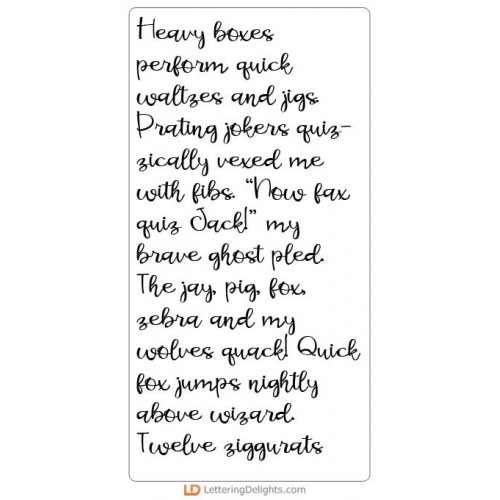 Heavy boxes
perform quick
waltzes and jigs.
Prating jokers quiz-
zically vexed me
with fibs. “Now fax
quiz Jack!” my
brave ghost pled.
The jay, pig, fox,
zebra and my
wolves quack! Quick
fox jumps nightly
above wizard.
Twelve ziggurats
LD LetteringDelights.com